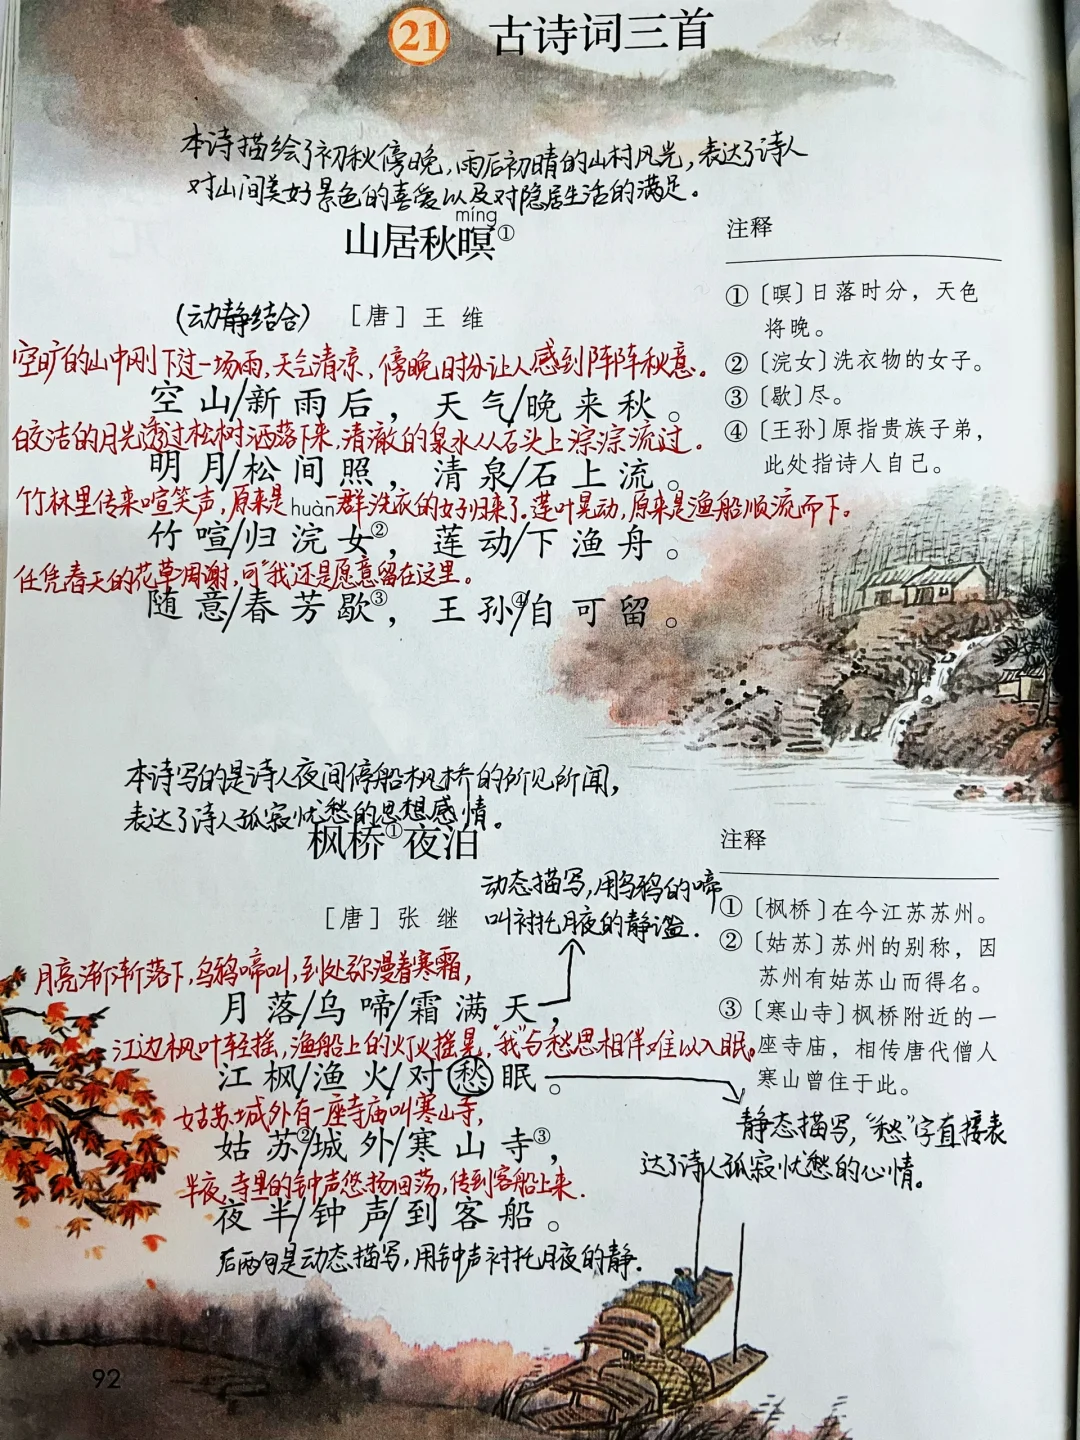 21 古诗词三首
本诗描绘了初秋傍晚,雨后初晴的山村风光,表达了诗人
对山间美好景色的喜爱以及对隐居生活的满足。
míng
山居秋暝①
(动静结合) [唐] 王 维
空旷的山中刚下过一场雨,天气清凉,傍晚时分让人感到阵阵秋意。
空山/新雨后,天气/晚来秋。
皎洁的月光透过松树洒落下来,清澈的泉水从石头上淙淙流过.
明月/松间照,清泉/石上流。
竹林里传来喧笑声,原来是一群洗衣的女子归来了.莲叶晃动,原来是渔船顺流而下。
huàn
竹喧/归浣女②,莲动/下渔舟。
任凭春天的花草凋谢,可“我”还是愿意留在这里。
随意/春芳歇③,王孙④/自可留。
注释
①〔暝〕日落时分,天色
将晚。
②〔浣女〕洗衣物的女子。
③〔歇〕尽。
④〔王孙〕原指贵族子弟,
此处指诗人自己。
本诗写的是诗人夜间停船枫桥的所见所闻,
表达了诗人孤寂忧愁的思想感情。
枫桥①夜泊
[唐] 张 继
动态描写,用乌鸦的啼
叫衬托月夜的静谧.
月亮渐渐落下,乌鸦啼叫,到处弥漫着寒霜,
月落/乌啼/霜满天,
江边枫叶轻摇,渔船上的灯火摇晃,“我”与愁思相伴难以入眠。
江枫/渔火/对愁眠。
姑苏城外有一座寺庙叫寒山寺,
姑苏②/城外/寒山寺③,
半夜,寺里的钟声悠扬回荡,传到客船上来.
夜半/钟声/到客船。
后两句是动态描写,用钟声衬托月夜的静.
注释
①〔枫桥〕在今江苏苏州。
②〔姑苏〕苏州的别称,因
苏州有姑苏山而得名。
③〔寒山寺〕枫桥附近的一
座寺庙,相传唐代僧人
寒山曾住于此。
静态描写,“愁”字直接表
达了诗人孤寂忧愁的心情。
92